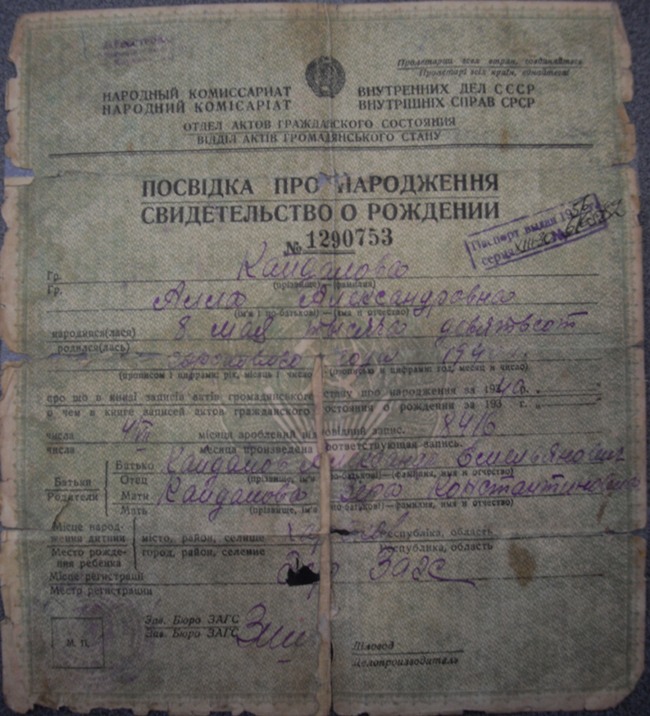 Пролетарии всех стран, соединяйтесь
Пролетарі всіх країн, єднайтеся
НАРОДНЫЙ КОМИССАРИАТ ВНУТРЕННИХ ДЕЛ СССР
НАРОДНИЙ КОМІСАРІАТ ВНУТРІШНІХ СПРАВ СРСР
ОТДЕЛ АКТОВ ГРАЖДАНСКОГО СОСТОЯНИЯ
ВІДДІЛ АКТІВ ГРОМАДЯНСЬКОГО СТАНУ
ПОСВІДКА ПРО НАРОДЖЕННЯ
СВИДЕТЕЛЬСТВО О РОЖДЕНИИ
№ 1290753
Паспорт выдан 1956
серия XIII-
Гр. Кайданова
(прізвище) — фамилия)
Гр. Алла Александровна
(ім'я і по-батькові) — (имя и отчество)
народився(лася) 8 мая тысяча девятьсот
родился(лась) сорокового года 194
(прописом і цифрами рік, місяць і число) (прописью и цифрами год, месяц и число)
про що в книзі записів актів громадянського стану про народження за 1940 р.
о чем в книге записей актов гражданского состояния о рождении за 193 г.
числа 4/VII місяця зроблений відповідний запис. 1841
числа месяца произведена соответствующая запись.
Батьки Батько Кайданов Емельянович
Родители Отец (фамилия, имя и отчество)
Мати Кайданова Вера Константиновна
Мать (прізвище, ім'я по-батькові) — фамилия, имя и отчество)
Місце народження дитини місто, район, селище республіка, область
Место рождения ребенка город, район, селение республика, область
Місце регистрації Загс
Место регистрации
Зав. Бюро ЗАГС
Зав. Бюро ЗАГС
М. П.
Діловод
Делопроизводитель